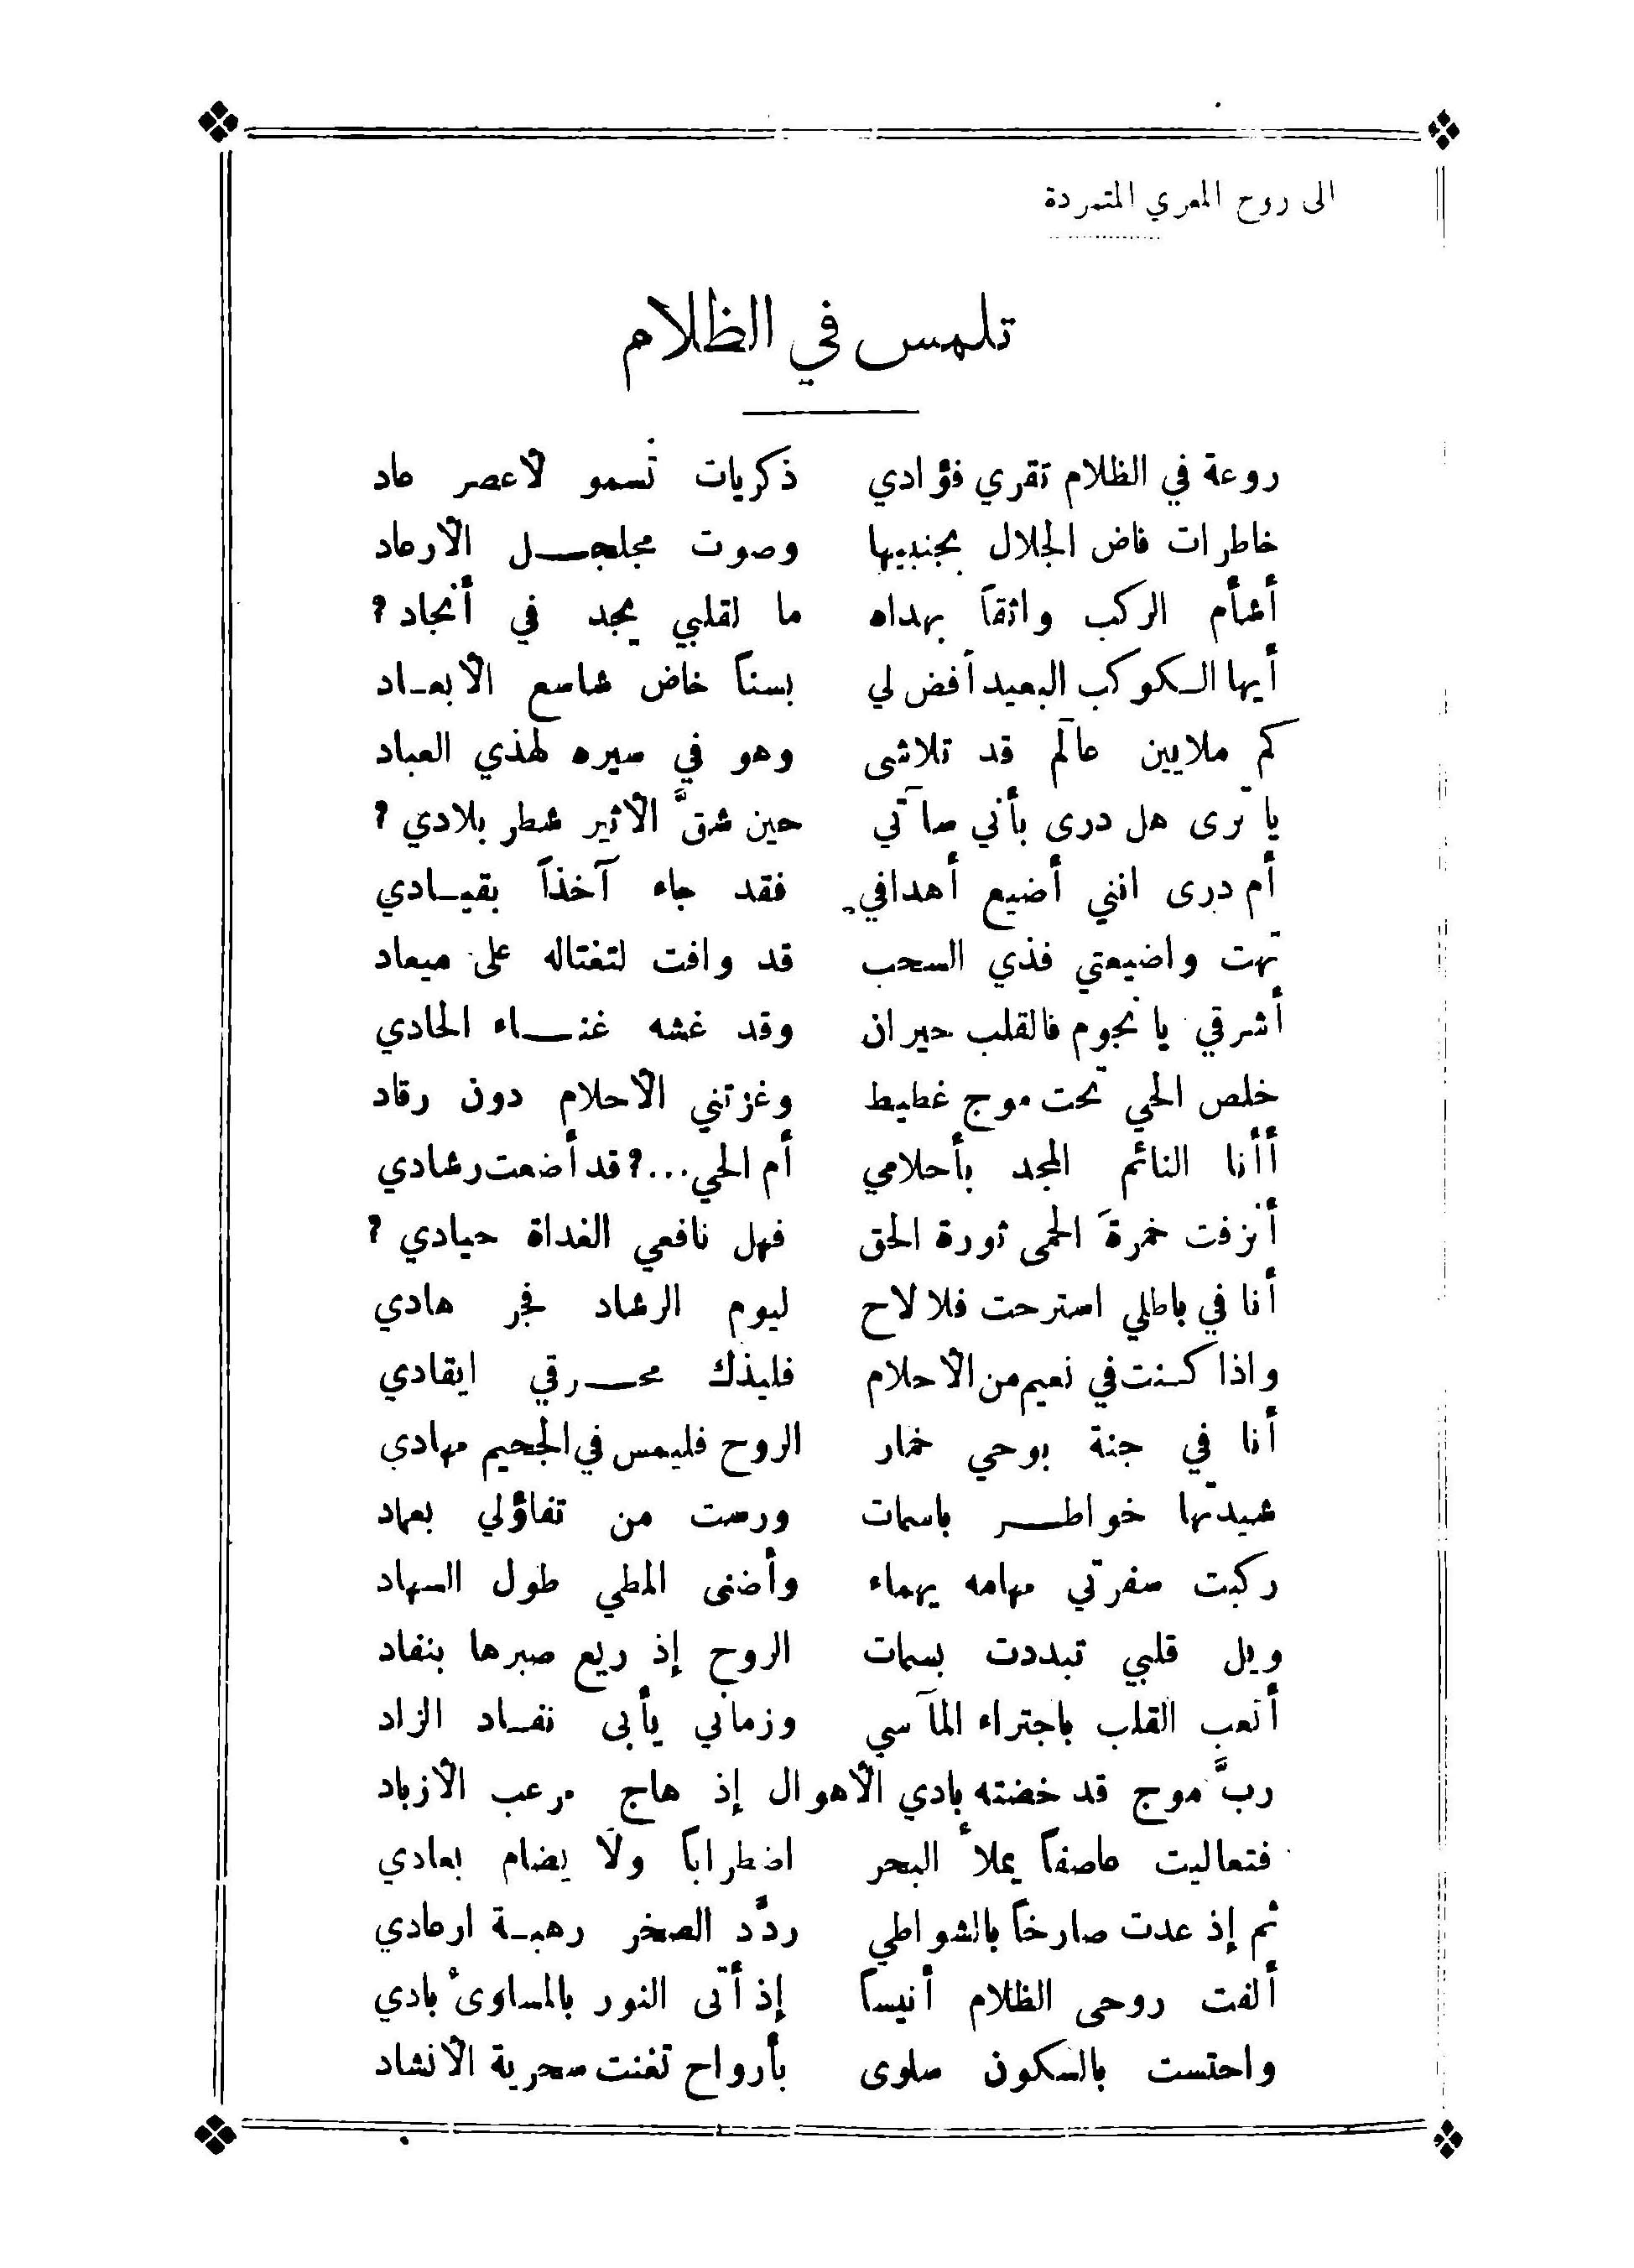 الى روح المعري المتمردة
تلمس في الظلام
روعة في الظلام تقري فؤادي ذكريات تسمو لأعصر عاد
خاطرات فاض الجلال بجنبيها وصوت مجلجل الأرعاد
أشأم الركب واثقاً بهداه ما لقلبي يجد في أنجاد ؟
أيها الكوكب البعيد أفض لي بسناً خاض شاسع الأبعاد
كم ملايين عالم قد تلاشى وهو في سيره لهذي العباد
يا ترى هل درى بأني سآتي حين شقَّ الأثير شطر بلادي ؟
أم درى انني أضيع أهدافي فقد جاء آخذاً بقيادي
تهت واضيعتي فذي السحب قد وافت لتغتاله على ميعاد
أشرقي يا نجوم فالقلب حيران وقد غشه غناء الحادي
خلص الحي تحت موج غطيط وغزتني الأحلام دون رقاد
أأنا النائم المجد بأحلامي أم الحي...؟ قد أضعت رشادي
أنزفت خمرةَ الحمى ثورة الحق فهل نافعي الغداة حيادي ؟
أنا في باطلي استرحت فلا لاح ليوم الرشاد فجر هادي
واذا كنت في نعيم من الأحلام فليذك محرقي ايقادي
أنا في جنة بوحي خمار الروح فليمس في الجحيم مهادي
شيدتها خواطر باسمات ورست من تفاؤلي بعماد
ركبت سفرتي مهامه يهماء وأضنى المطي طول السهاد
ويل قلبي تبددت بسمات الروح إذ ريع صبرها بنفاد
أتعب القلب باجتراء المآسي وزماني يأبى نفاد الزاد
ربَّ موج قد خضته بادي الأهوال إذ هاج مرعب الأزباد
فتعاليت عاصفاً يملأ البحر اضطراباً ولا يضام بعادي
ثم إذ عدت صارخاً بالشواطي ردَّد الصخر رهبة ارعادي
ألفت روحي الظلام أنيساً إذ أتى النور بالمساوئ بادي
واحتست بالسكون سلوى بأرواح تغنت سحرية الأنشاد